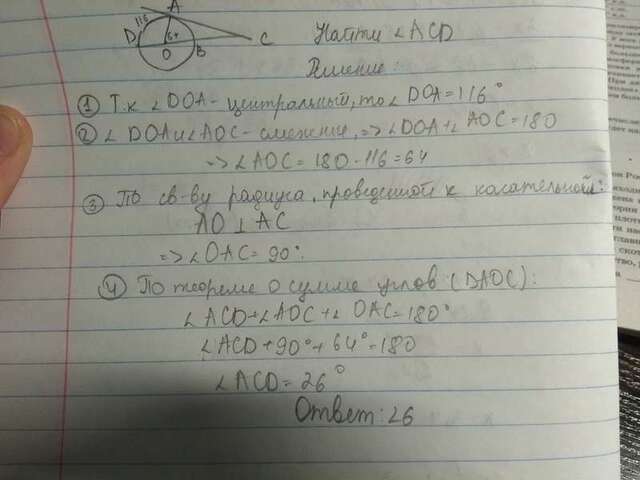 A
116
D
64
O
B
C
Найти ∠ACD
Решение:
① Т.к ∠DOA - центральный, то ∠DOA = 116°
② ∠DOA и ∠AOC - смежные, => ∠DOA + ∠AOC = 180
=> ∠AOC = 180 - 116 = 64
③ По св-ву радиуса, проведенной к касательной:
AO ⊥ AC
=> ∠OAC = 90°.
④ По теореме о сумме углов (DAOC):
∠ACD + ∠AOC + ∠OAC = 180°
∠ACD + 90° + 64° = 180
∠ACD = 26°
Ответ: 26